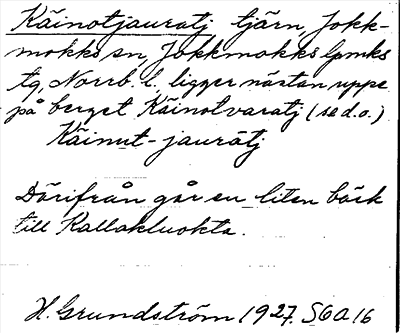 Käinotjauratj tjärn, Jokk-
mokks sn, Jokkmokks lpmks
tg, Norrb. l., ligger nästan uppe
på berget Käinotvaratj (se d.o.)
Käinut-jauratj
Därifrån går en liten bäck
till Kallakluokta.
H. Grundström 1927 SOA 16